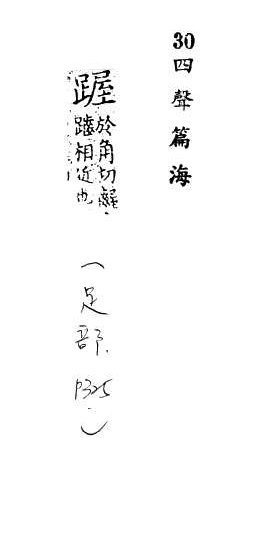 30 四聲篇海
於角切
相近也
(足部. P325.)